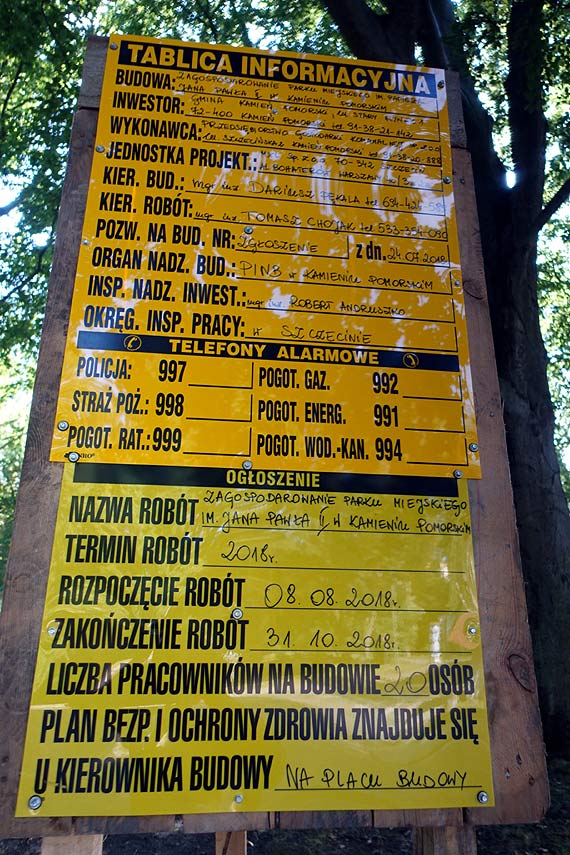 TABLICA INFORMACYJNA
BUDOWA: ZAGOSPODAROWANIE PARKU MIEJSKIEGO IM. PAPIEŻA
JANA PAWŁA II W KAMIENIU POMORSKIM
INWESTOR: GMINA KAMIEŃ POMORSKI, UL. STARY RYNEK 1
72-400 KAMIEŃ POMORSKI tel 91-38-21-142
WYKONAWCA: PRZEDSIĘBIORSTWO GOSPODARKI KOMUNALNEJ SP. Z O.O.
UL. SZCZECIŃSKA KAMIEŃ POMORSKI
JEDNOSTKA PROJEKT.: SP. Z O.O. 70-342 SZCZECIN
UL. BOHATERÓW WARSZAWY
KIER. BUD.: mgr inż DARIUSZ PĘKALA tel
KIER. ROBÓT: mgr inż. TOMASZ CHOJAK tel 533-354-090
POZW. NA BUD. NR: ZGŁOSZENIE z dn. 24.07.2018
ORGAN NADZ. BUD.: PINB W KAMIENIU POMORSKIM
INSP. NADZ. INWEST.: mgr inż. ROBERT ANDRUSZKO
OKRĘG. INSP. PRACY: W SZCZECINIE
TELEFONY ALARMOWE
POLICJA: 997 POGOT. GAZ. 992
STRAŻ POŻ.: 998 POGOT. ENERG. 991
POGOT. RAT.: 999 POGOT. WOD.-KAN. 994
OGŁOSZENIE
NAZWA ROBÓT ZAGOSPODAROWANIE PARKU MIEJSKIEGO
IM. JANA PAWŁA II W KAMIENIU POMORSKIM
TERMIN ROBÓT 2018r.
ROZPOCZĘCIE ROBÓT 08.08.2018r.
ZAKOŃCZENIE ROBÓT 31.10.2018r.
LICZBA PRACOWNIKÓW NA BUDOWIE 20 OSÓB
PLAN BEZP. I OCHRONY ZDROWIA ZNAJBUJE SIĘ
U KIEROWNIKA BUDOWY NA PLACU BUDOWY